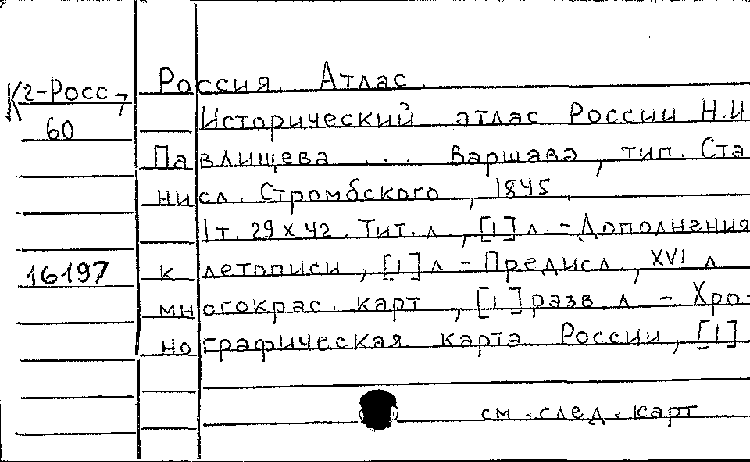 Россия. Атлас.
К2-Росс-7
60
Исторический атлас России Н.И
Павлищева ... Варшава, тип. Ста
нисл. Стромбского, 1845.
1 т. 29 x 42. Тит. л., [1] л. - Дополнения
16197
к летописи, [1] л - Предисл., XVI л
многокрас. карт, [1] разв. л - Хро-
нографическая карта России, [1]
см. след. карт